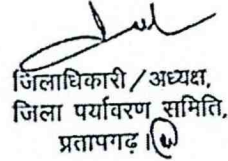 जिलाधिकारी / अध्यक्ष,
जिला पर्यावरण समिति,
प्रतापगढ़।